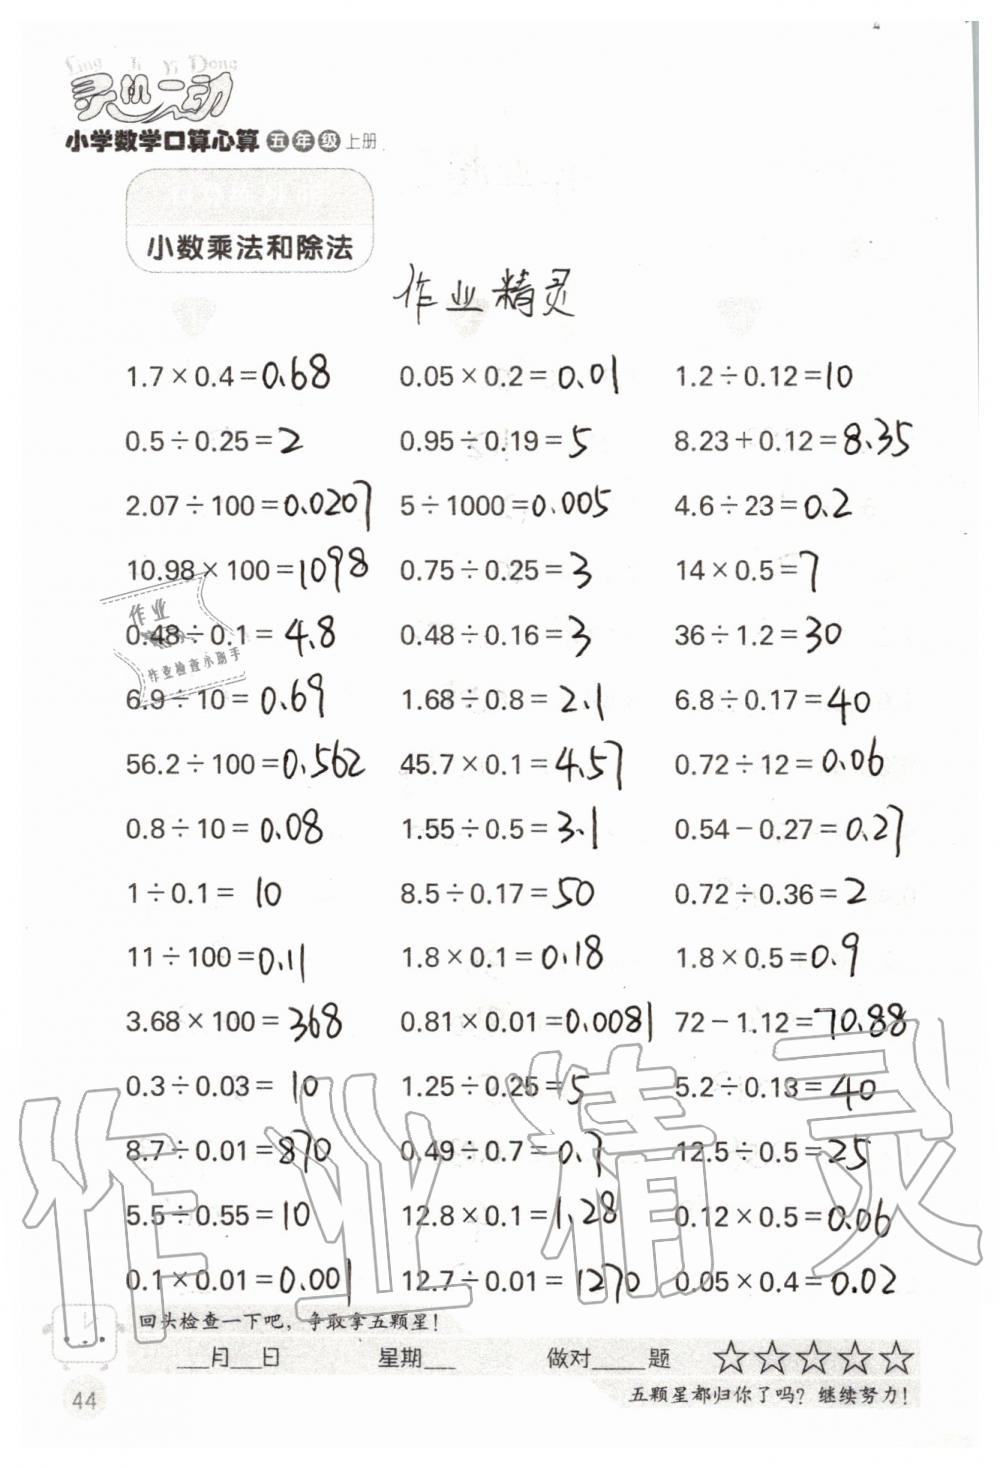 Ling Ji Yi Dong
灵机一动
小学数学口算心算 五年级 上册
小数乘法和除法
作业精灵
1.7×0.4=0.68 0.05×0.2=0.01 1.2÷0.12=10
0.5÷0.25=2 0.95÷0.19=5 8.23+0.12=8.35
2.07÷100=0.0207 5÷1000=0.005 4.6÷23=0.2
10.98×100=1098 0.75÷0.25=3 14×0.5=7
0.48÷0.1=4.8 0.48÷0.16=3 36÷1.2=30
作业
作业检查小助手
6.9÷10=0.69 1.68÷0.8=2.1 6.8÷0.17=40
56.2÷100=0.562 45.7×0.1=4.57 0.72÷12=0.06
0.8÷10=0.08 1.55÷0.5=3.1 0.54-0.27=0.27
1÷0.1=10 8.5÷0.17=50 0.72÷0.36=2
11÷100=0.11 1.8×0.1=0.18 1.8×0.5=0.9
3.68×100=368 0.81×0.01=0.0081 72-1.12=70.88
0.3÷0.03=10 1.25÷0.25=5 5.2÷0.13=40
8.7÷0.01=870 0.49÷0.7=0.7 12.5÷0.5=25
5.5÷0.55=10 12.8×0.1=1.28 0.12×0.5=0.06
0.1×0.01=0.001 12.7÷0.01=1270 0.05×0.4=0.02
作业精灵
回头检查一下吧，争取拿五颗星！
___月___日 星期___ 做对_____题 ☆☆☆☆☆
44 五颗星都归你了吗？继续努力！